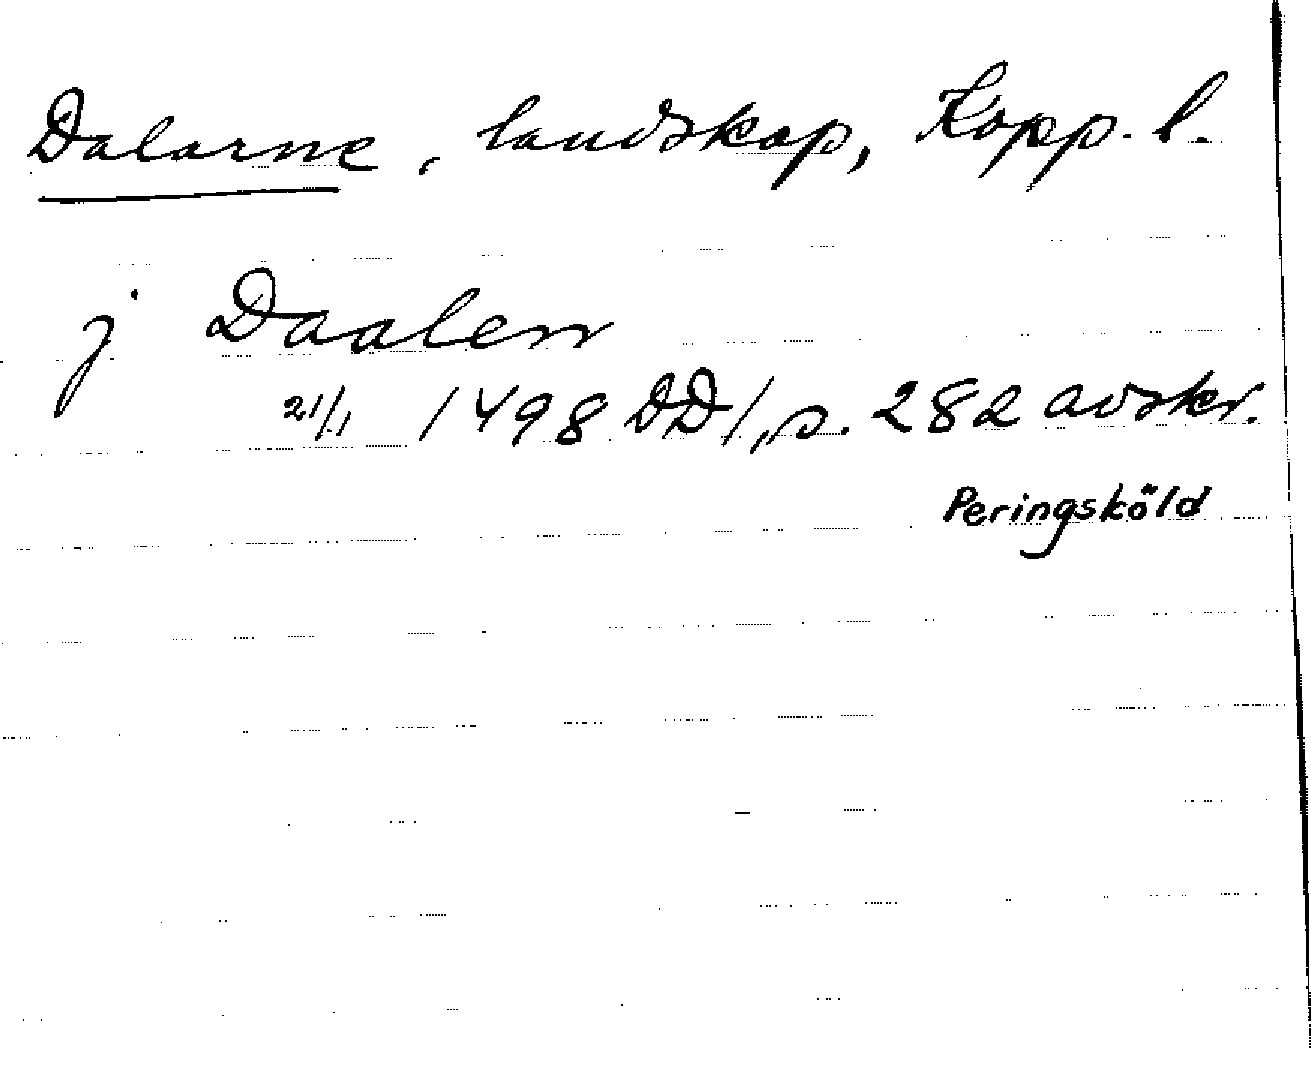 Dalarne, landskap, Kopp. l.
j Daalen
21/1 1498 DD1, s. 282 avskr.
Peringsköld